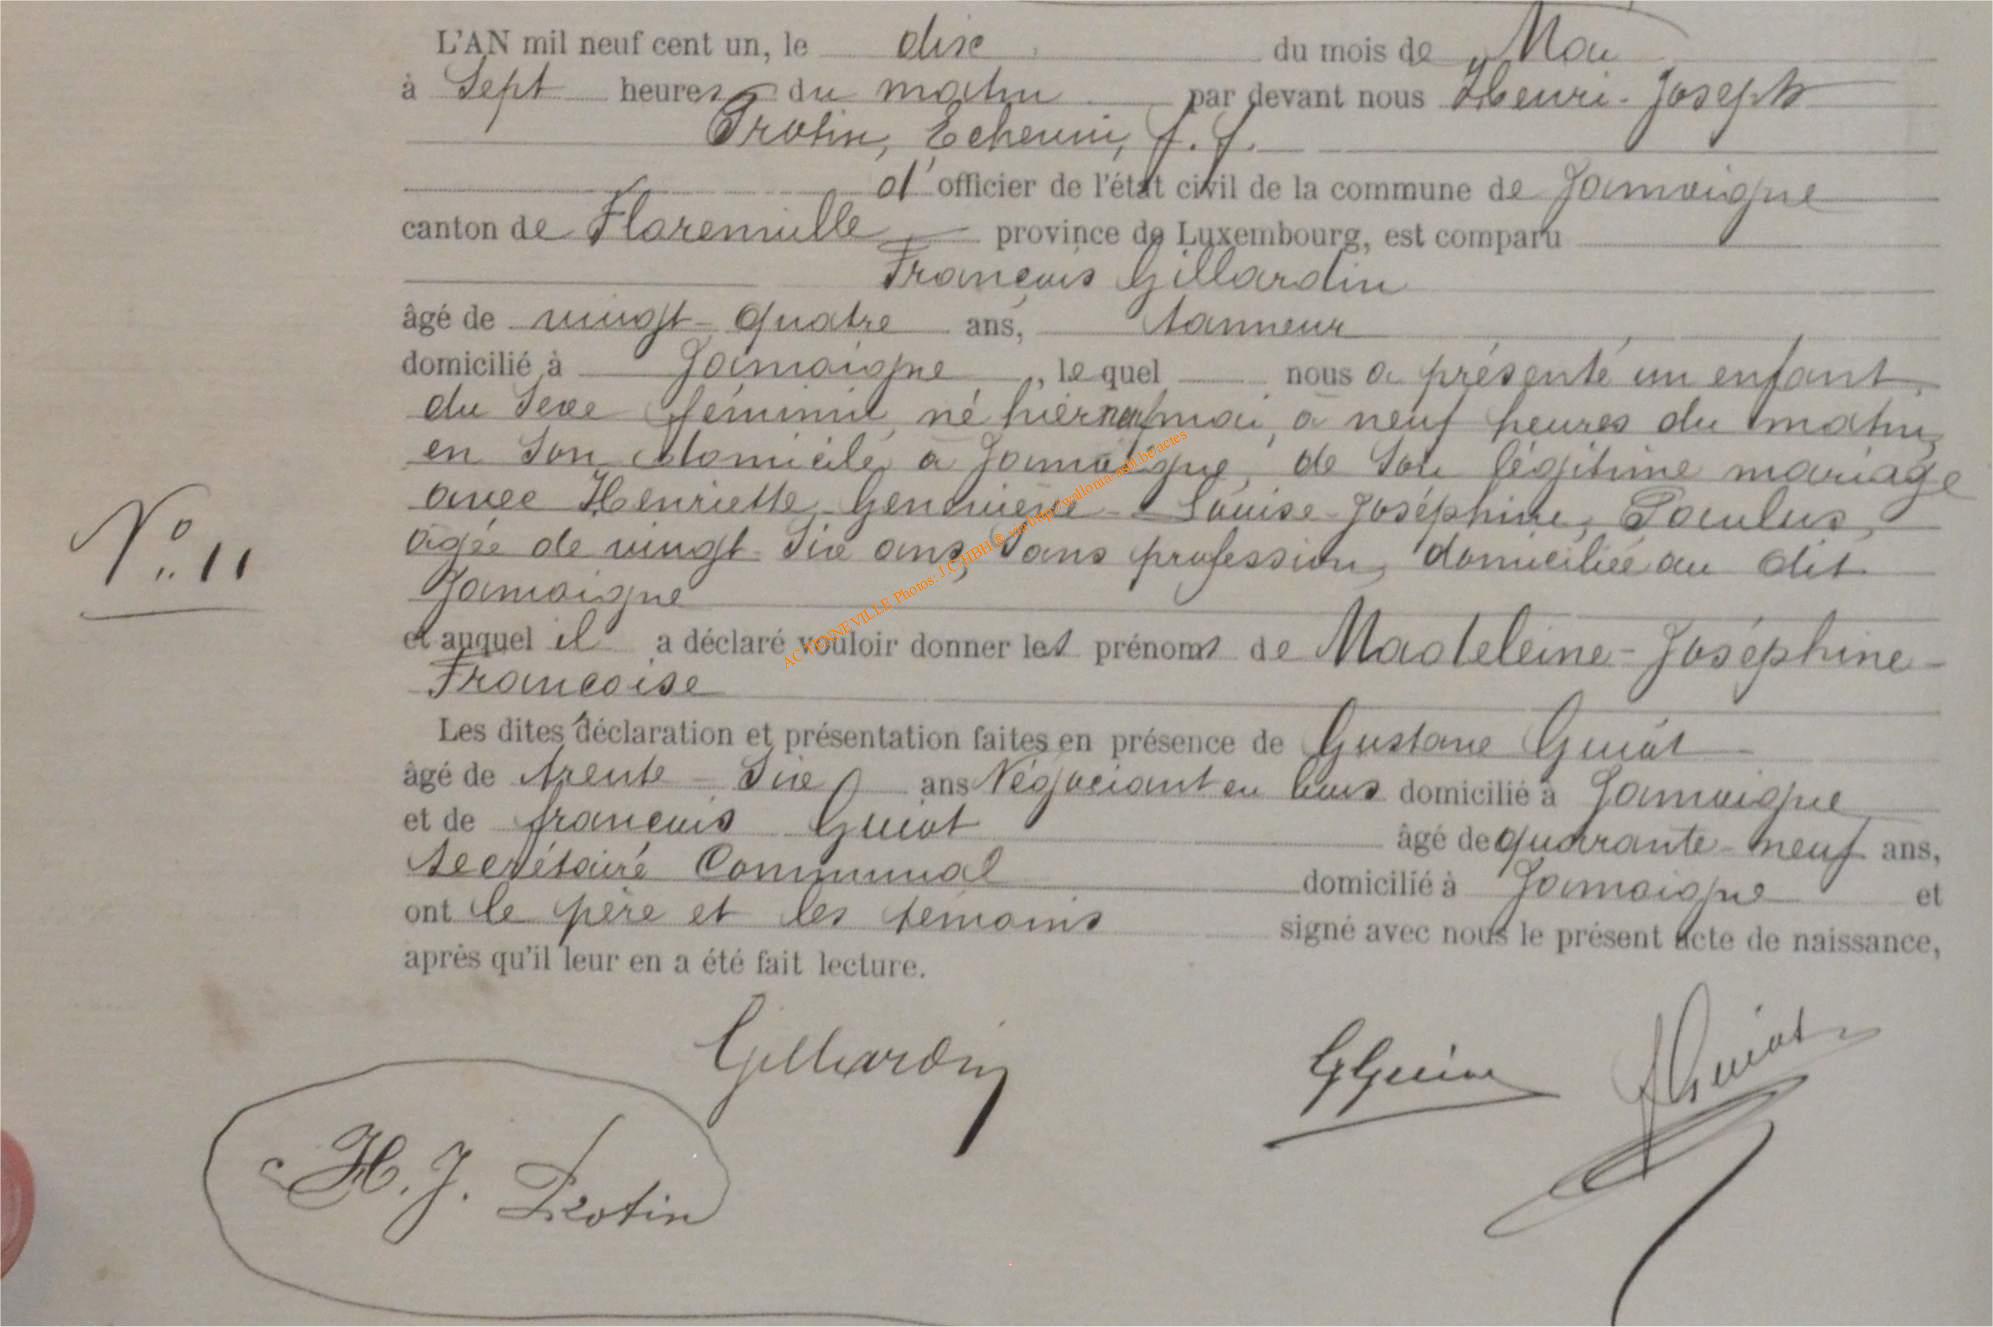 L'AN mil neuf cent un, le dix du mois de Mai
à Sept heures du matin par devant nous Henri-Joseph
Protin, Echevin, f.f.
d'officier de l'état civil de la commune de Jamoigne
canton de Florenville province de Luxembourg, est comparu
François Gillardin
âgé de vingt-quatre ans, tanneur
domicilié à Jamoigne, le quel nous a présenté un enfant
du Sexe féminin, né hier neuf mai, à neuf heures du matin,
en Son domicile, à Jamoigne, de Son légitime mariage
avec Henriette-Geneviève-Louise-Joséphine, Paulus,
âgée de vingt-Six ans, Sans profession, domiciliée au dit
Jamoigne
N° 11
et auquel il a déclaré vouloir donner les prénoms de Madeleine-Joséphine-
Françoise
Les dites déclaration et présentation faites en présence de Gustave Guiot
âgé de trente-Six ans Négociant en bois domicilié à Jamoigne
et de François Guiot âgé de quarante-neuf ans,
Secrétaire Communal domicilié à Jamoigne et
ont le père et les témoins signé avec nous le présent acte de naissance,
après qu'il leur en a été fait lecture.
Gillardin
GGuiot
FGuiot
H. J. Protin